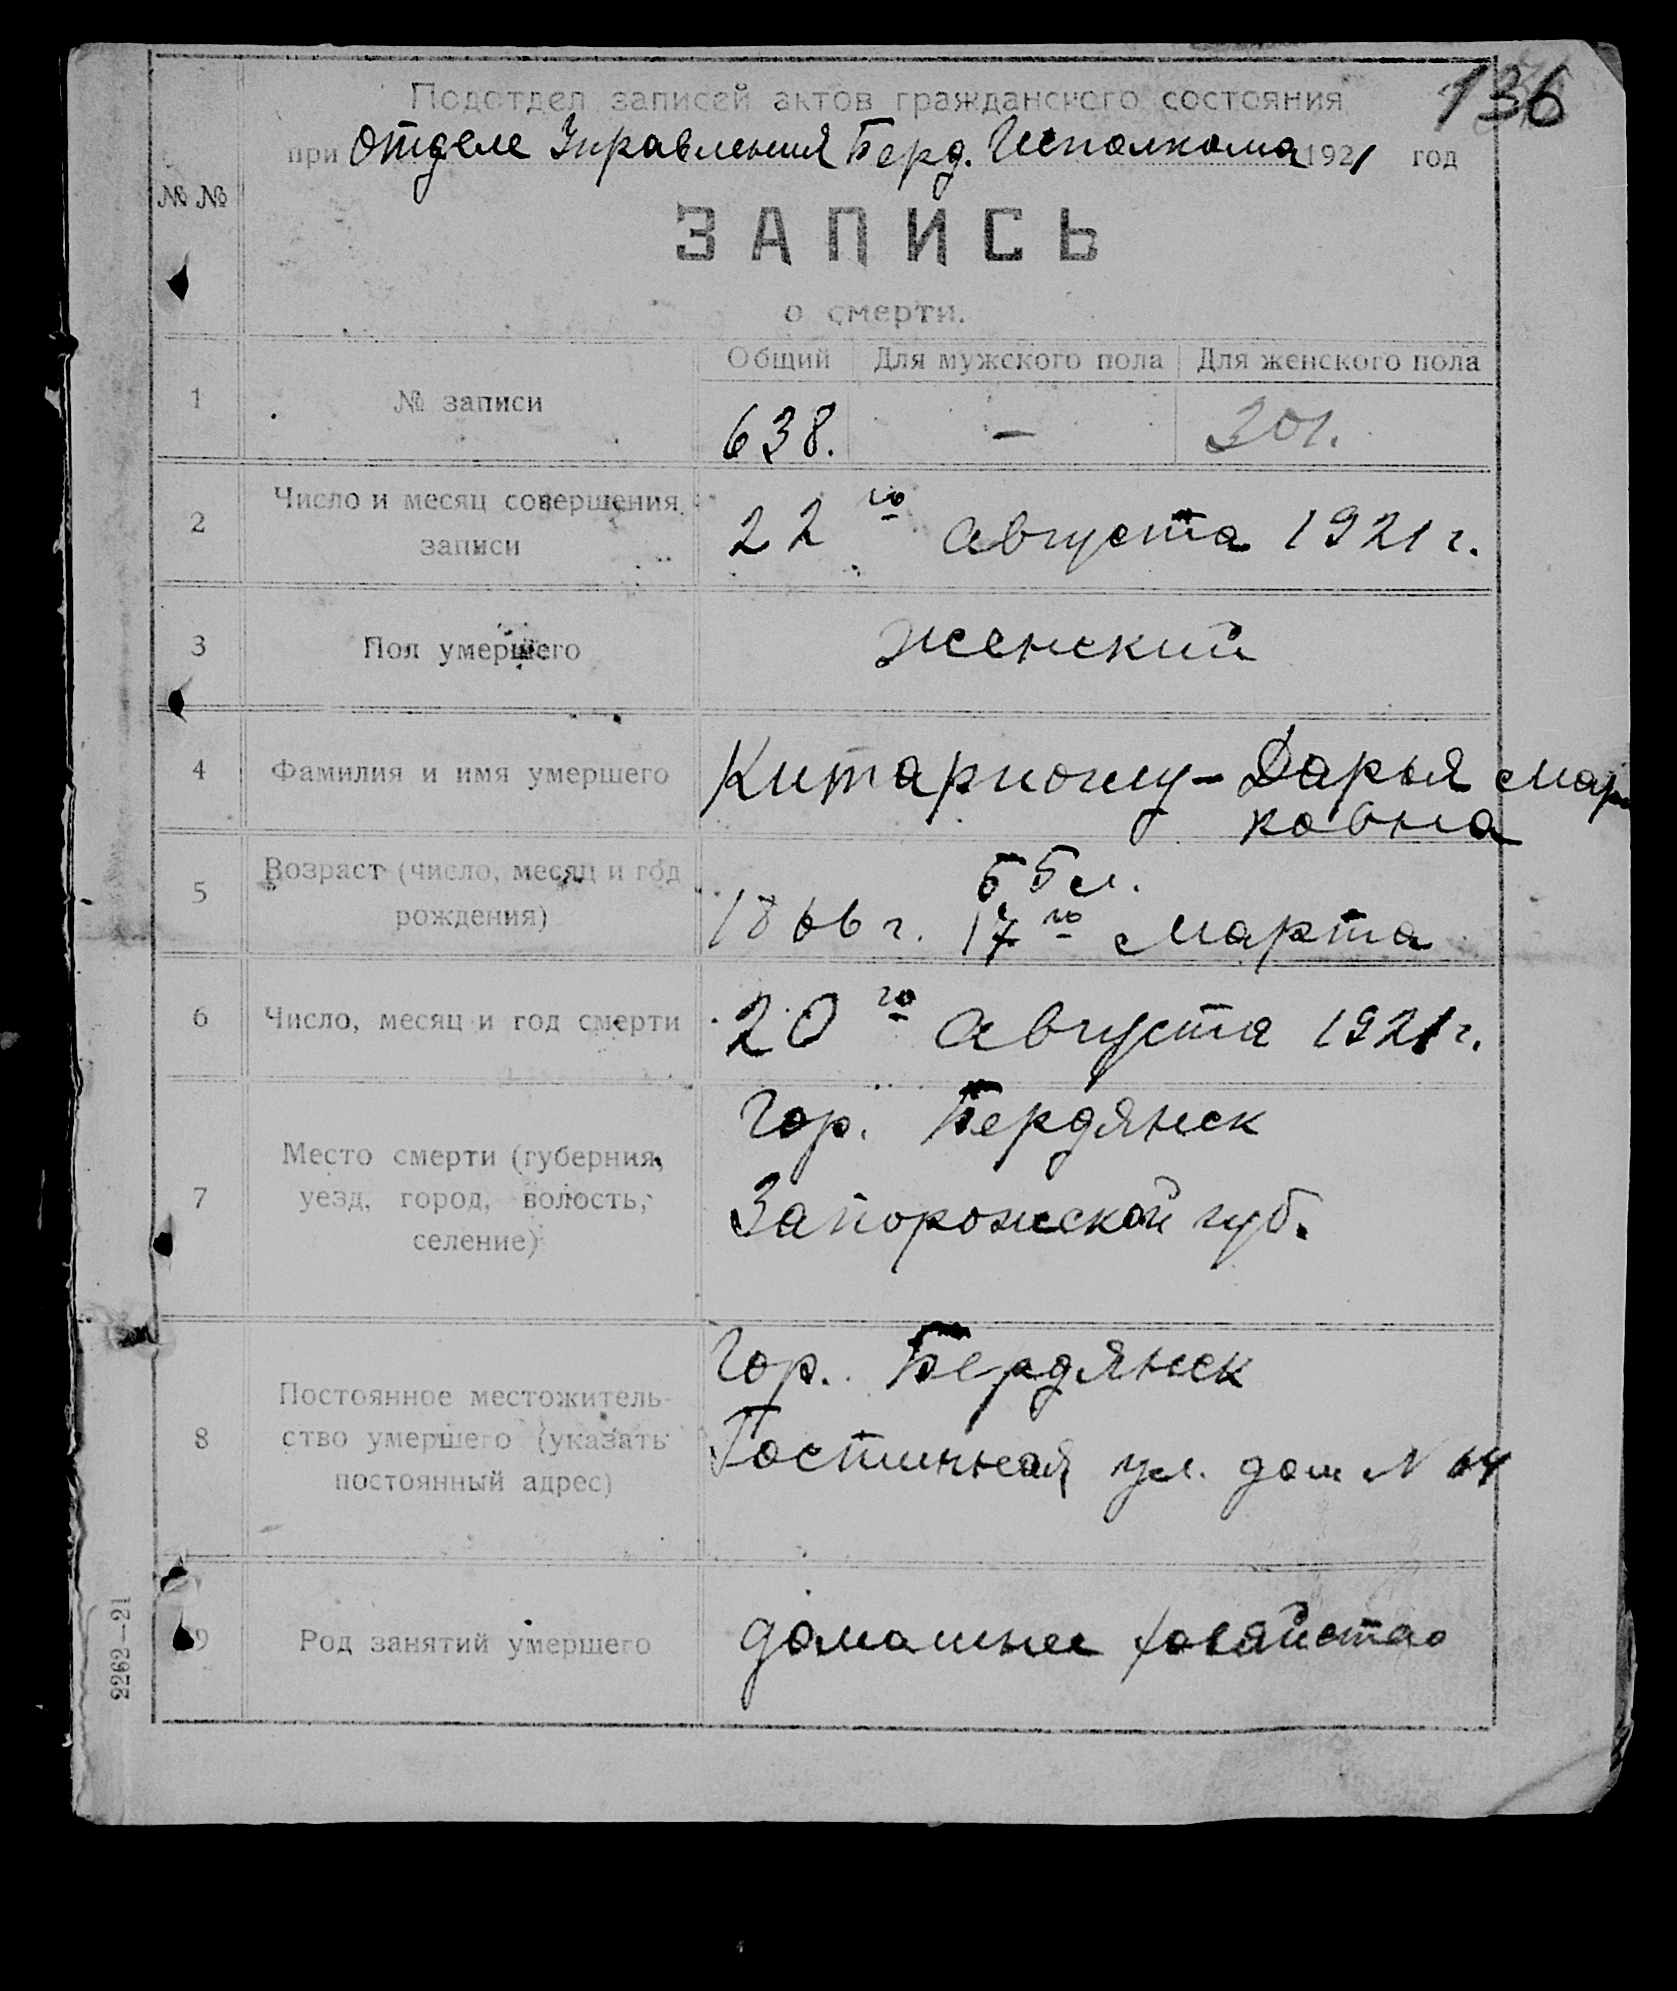 136
Подотдел записей актов гражданского состояния
при Отделе Управления Берд. Исполкома 1921 год
№ №
ЗАПИСЬ
о смерти.
Общий Для мужского пола Для женского пола
1 № записи 638. — 301.
2 Число и месяц совершения записи 22го августа 1921 г.
3 Пол умершего женский
4 Фамилия и имя умершего Дарья Мар
ковна
5 Возраст (число, месяц и год рождения) 55 л.
1866 г. 17го марта
6 Число, месяц и год смерти 20го августа 1921 г.
7 Место смерти (губерния, уезд, город, волость, селение) Гор. Бердянск
Запорожской губ.
8 Постоянное местожитель-
ство умершего (указать постоянный адрес) Гор. Бердянск
Гостинная ул. дом №
9 Род занятий умершего домашнее хозяйство
2262—21